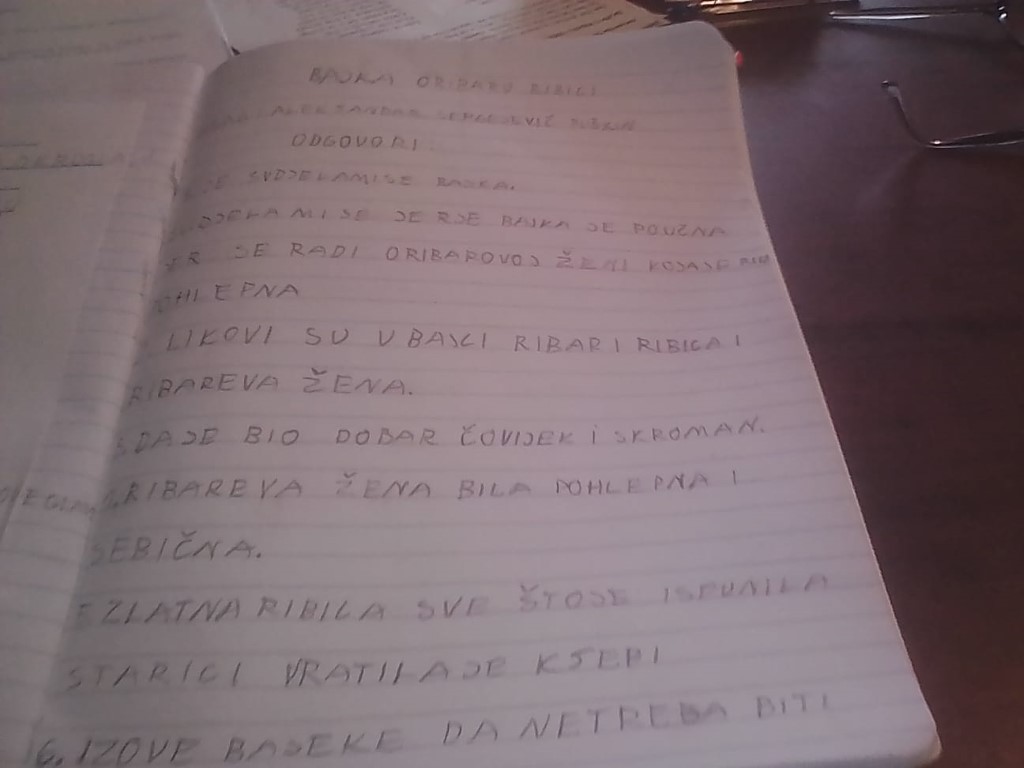 BAJKA ORIBARU RIBICI
ALEKSANDAR SERGEJEVIČ
ODGOVORI
SVDJELAMISE BAJKA.
MI SE JERJE BAJKA JE POUČNA
JE RADI ORIBAROVOJ ŽENI KOJAJE BILA
OHLEPNA
LIKOVI SU U BAJCI RIBAR I RIBICA I
RIBAREVA ŽENA.
DAJE BIO DOBAR ČOVIJEK I SKROMAN.
RIBAREVA ŽENA BILA POHLEPNA I
SEBIČNA.
ZLATNA RIBILA SVE ŠTOJE ISPUNILA
STARICI VRATILAJE KSEBI
6. IZOVE BAJEKE DA NETREBA BITI